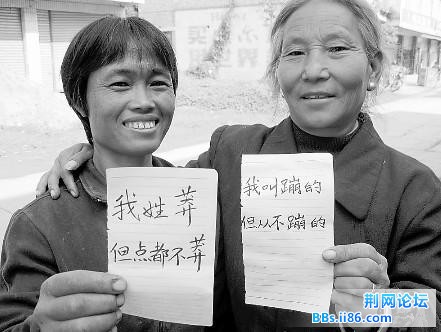 我姓莽
但点都不莽
我叫蹦的
但从不蹦的
荆网论坛
BBs.ii86.com